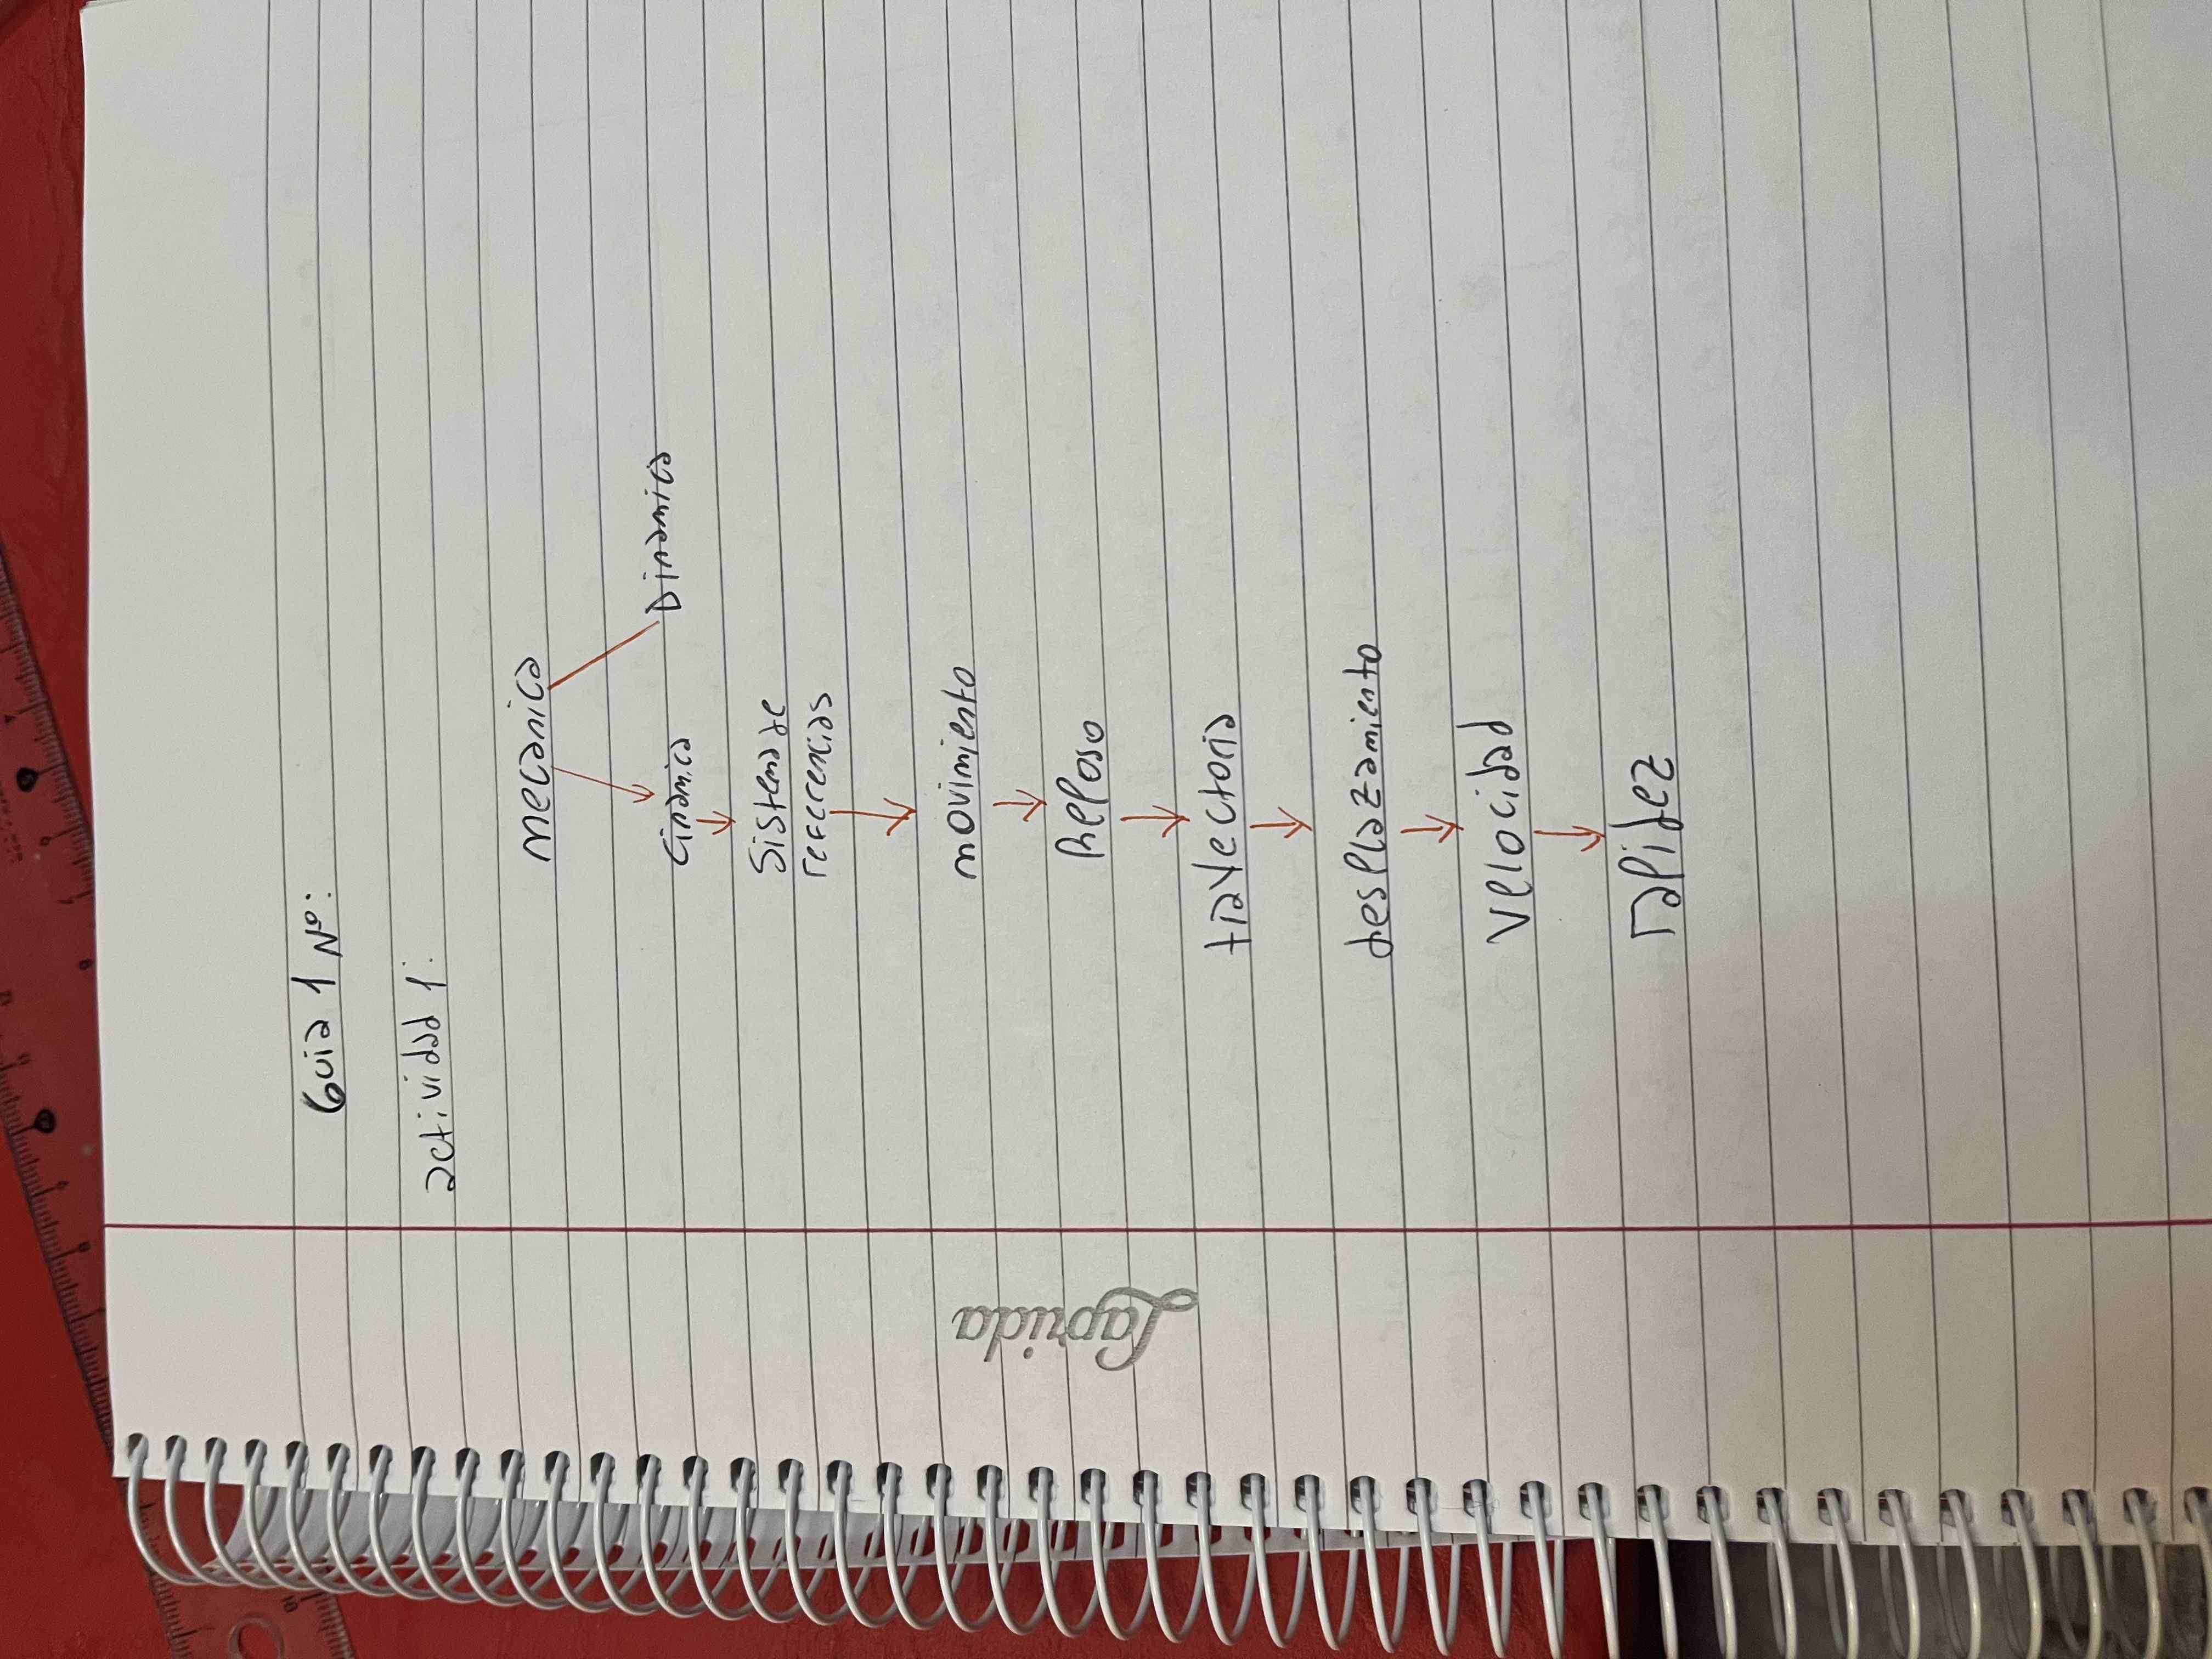 Guia 1 Nº:
actividad 1:
mecanica
Cinamica Dinamica
Sistema de
referencias
movimiento
Reposo
trayectoria
desplazamiento
Velocidad
rapidez
Laprida